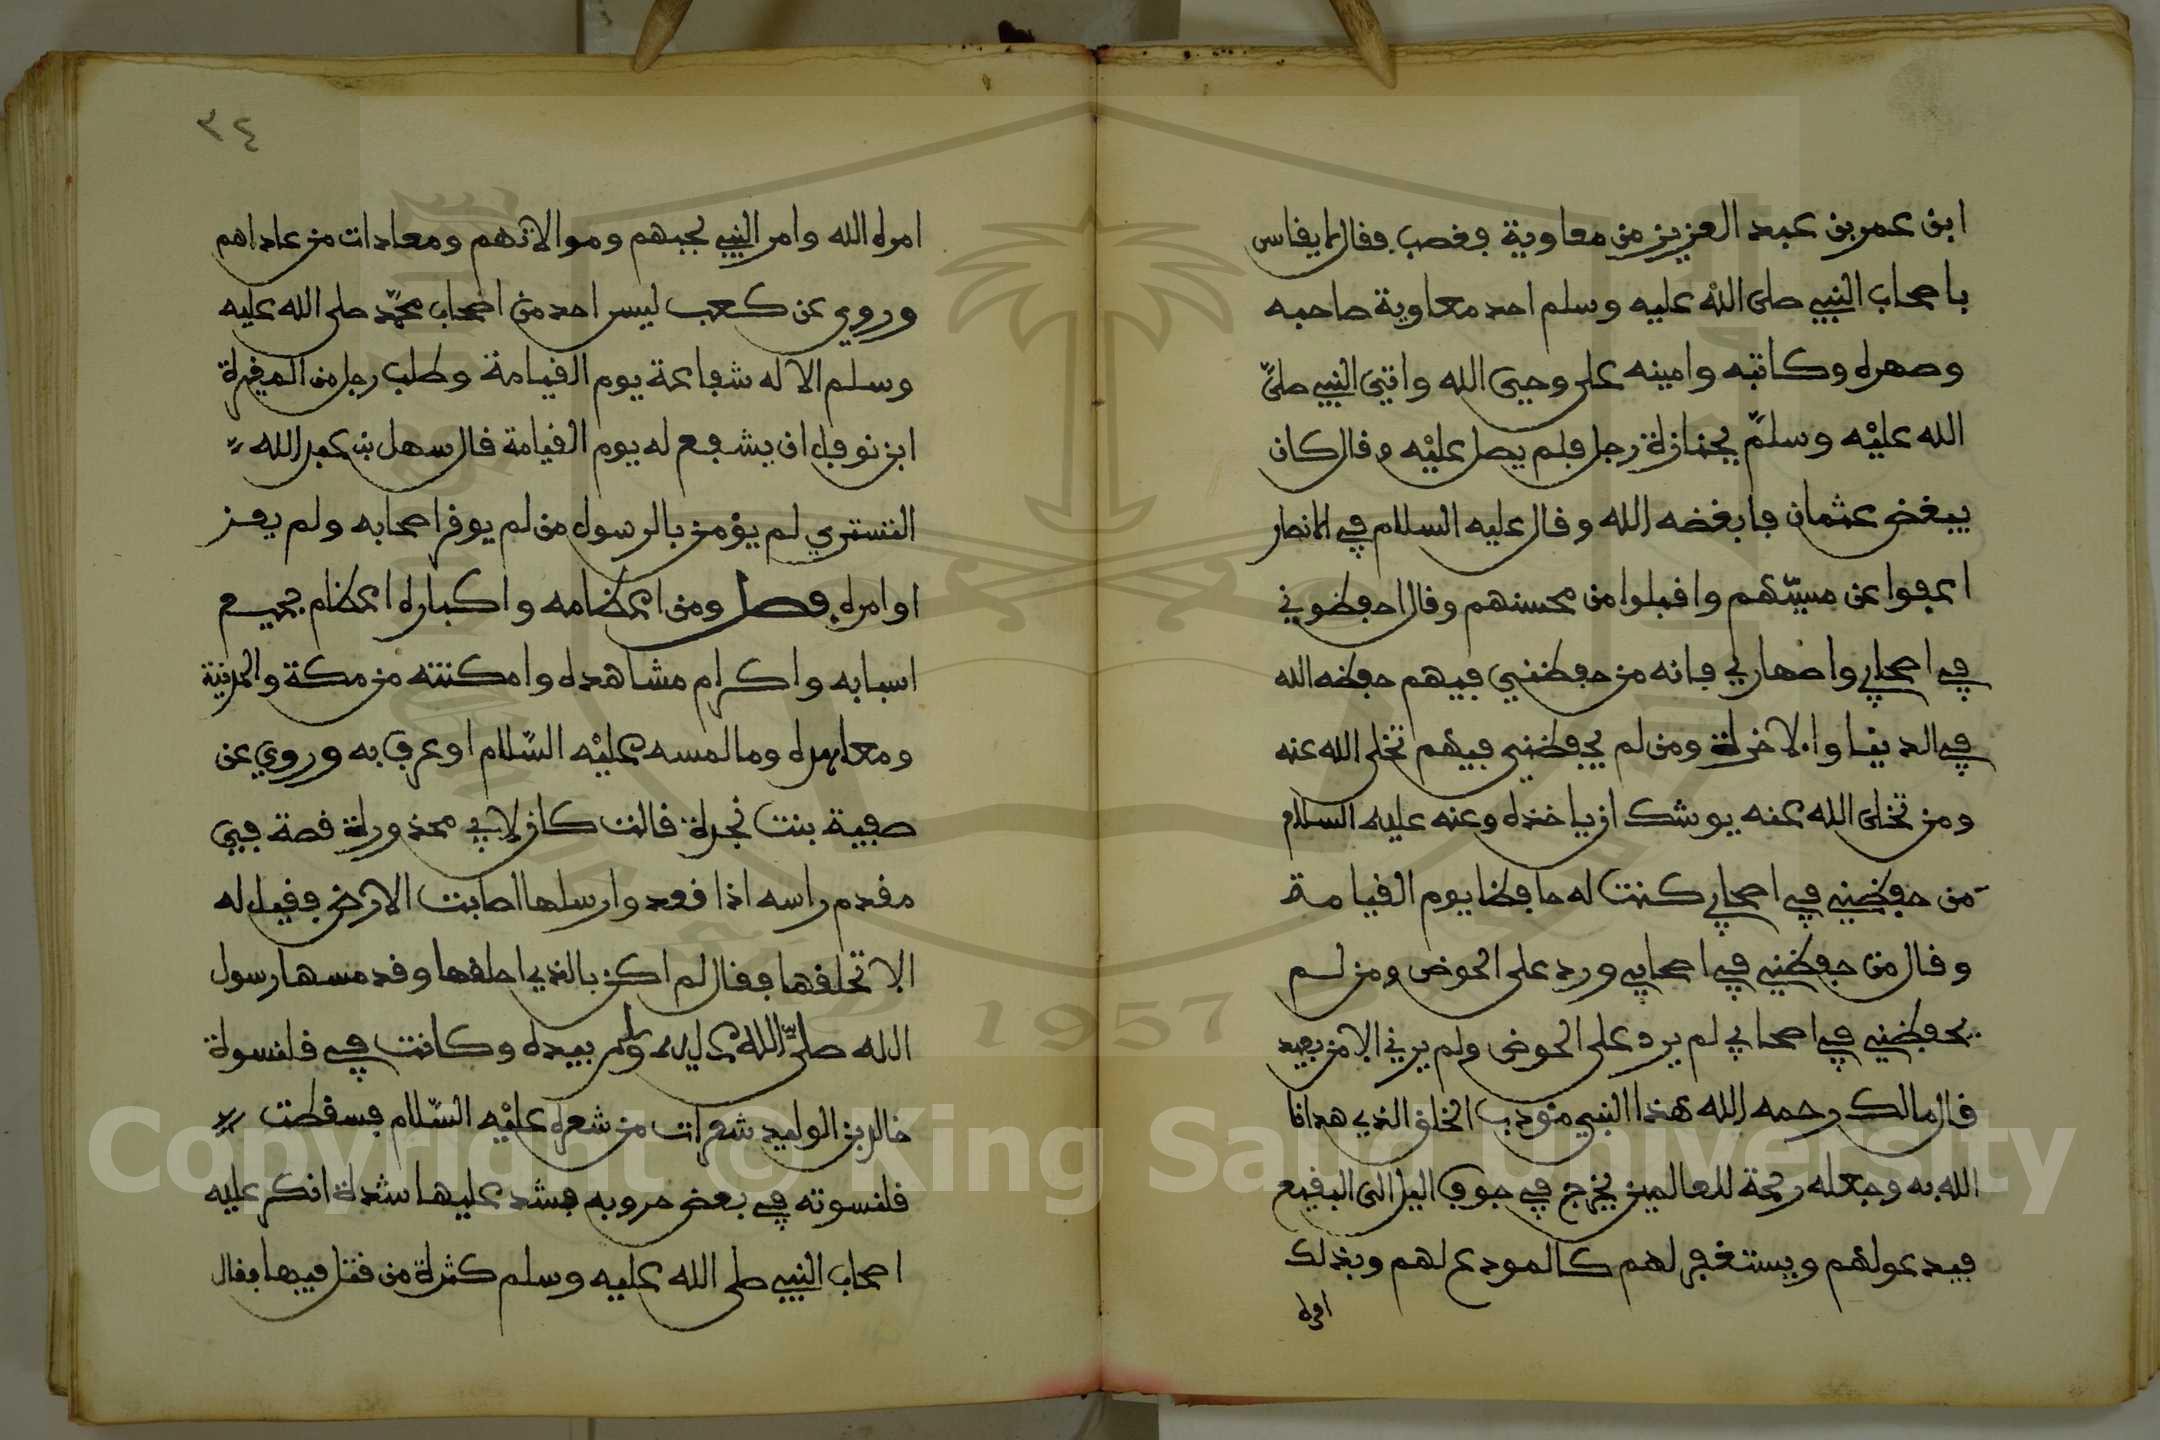 ابن عمر بن عبد العزيز من معاوية فغضب فقال لا يقاس
باصحاب النبي صلى الله عليه وسلم احد معاوية صاحبه
وصهره وكاتبه وامينه على وحيى الله واتيى النبي صلى
الله عليه وسلم بجنازة رجل فلم يصل عليه وقال كان
يبغض عثمان فابغضه الله وقال عليه السلام في الانصار
اعفوا عن مسيئهم واقبلوا من محسنهم وقال احفظوني
في اصحابي واصهاري فانه من حفظني فيهم حفظه الله
في الدنيا والاخرة ومن لم يحفظني فيهم تخلى الله عنه
ومن تخلى الله عنه يوشك ان ياخذه وعنه عليه السلام
من حفظني في اصحابي كنت له حافظا يوم القيامة
وقال من حفظني في اصحابي ورد على الحوض ومن لم
يحفظني في اصحابي لم يرد على الحوض ولم يرني الا من بعيد
قال مالك رحمه الله هذا النبي مؤدب الخلق الذي هدانا
الله به وجعله رحمة للعالمين يخرج في جوف اليل الى البقيع
فيدعوا لهم ويستغفر لهم كالمودع لهم وبذلك
امره
٣٤
امره الله وامر النبي بحبهم وموالاتهم ومعادات من عاداهم
وروي عن كعب ليس احد من اصحاب محمد صلى الله عليه
وسلم الا له شفاعة يوم القيامة وطلب رجل من المغيرة
ابن نوفل ان يشفع له يوم القيامة قال سهل بن عبد الله
التستري لم يؤمن بالرسول من لم يوقر اصحابه ولم يعز
اوامره فصل ومن اعظامه واكباره اعظام جميع
اسبابه واكرام مشاهده وامكنته من مكة والمدينة
ومعاهده وما لمسه عليه السلام او عرف به وروي عن
صفية بنت نجدة قالت كان لابي محذورة قصة في
مقدم راسه اذا قعد وارسلها اصابت الارض فقيل له
الا تحلقها فقال لم اكن بالذي احلقها وقد مسها رسول
الله صلى الله عليه وسلم بيده وكانت في قلنسوة
خالد بن الوليد شعرات من شعره عليه السلام فسقطت
قلنسوته في بعض حروبه فشد عليها شدة انكر عليه
اصحاب النبي صلى الله عليه وسلم كثرة من قتل فيها فقال
Copyright © King Saud University
1957